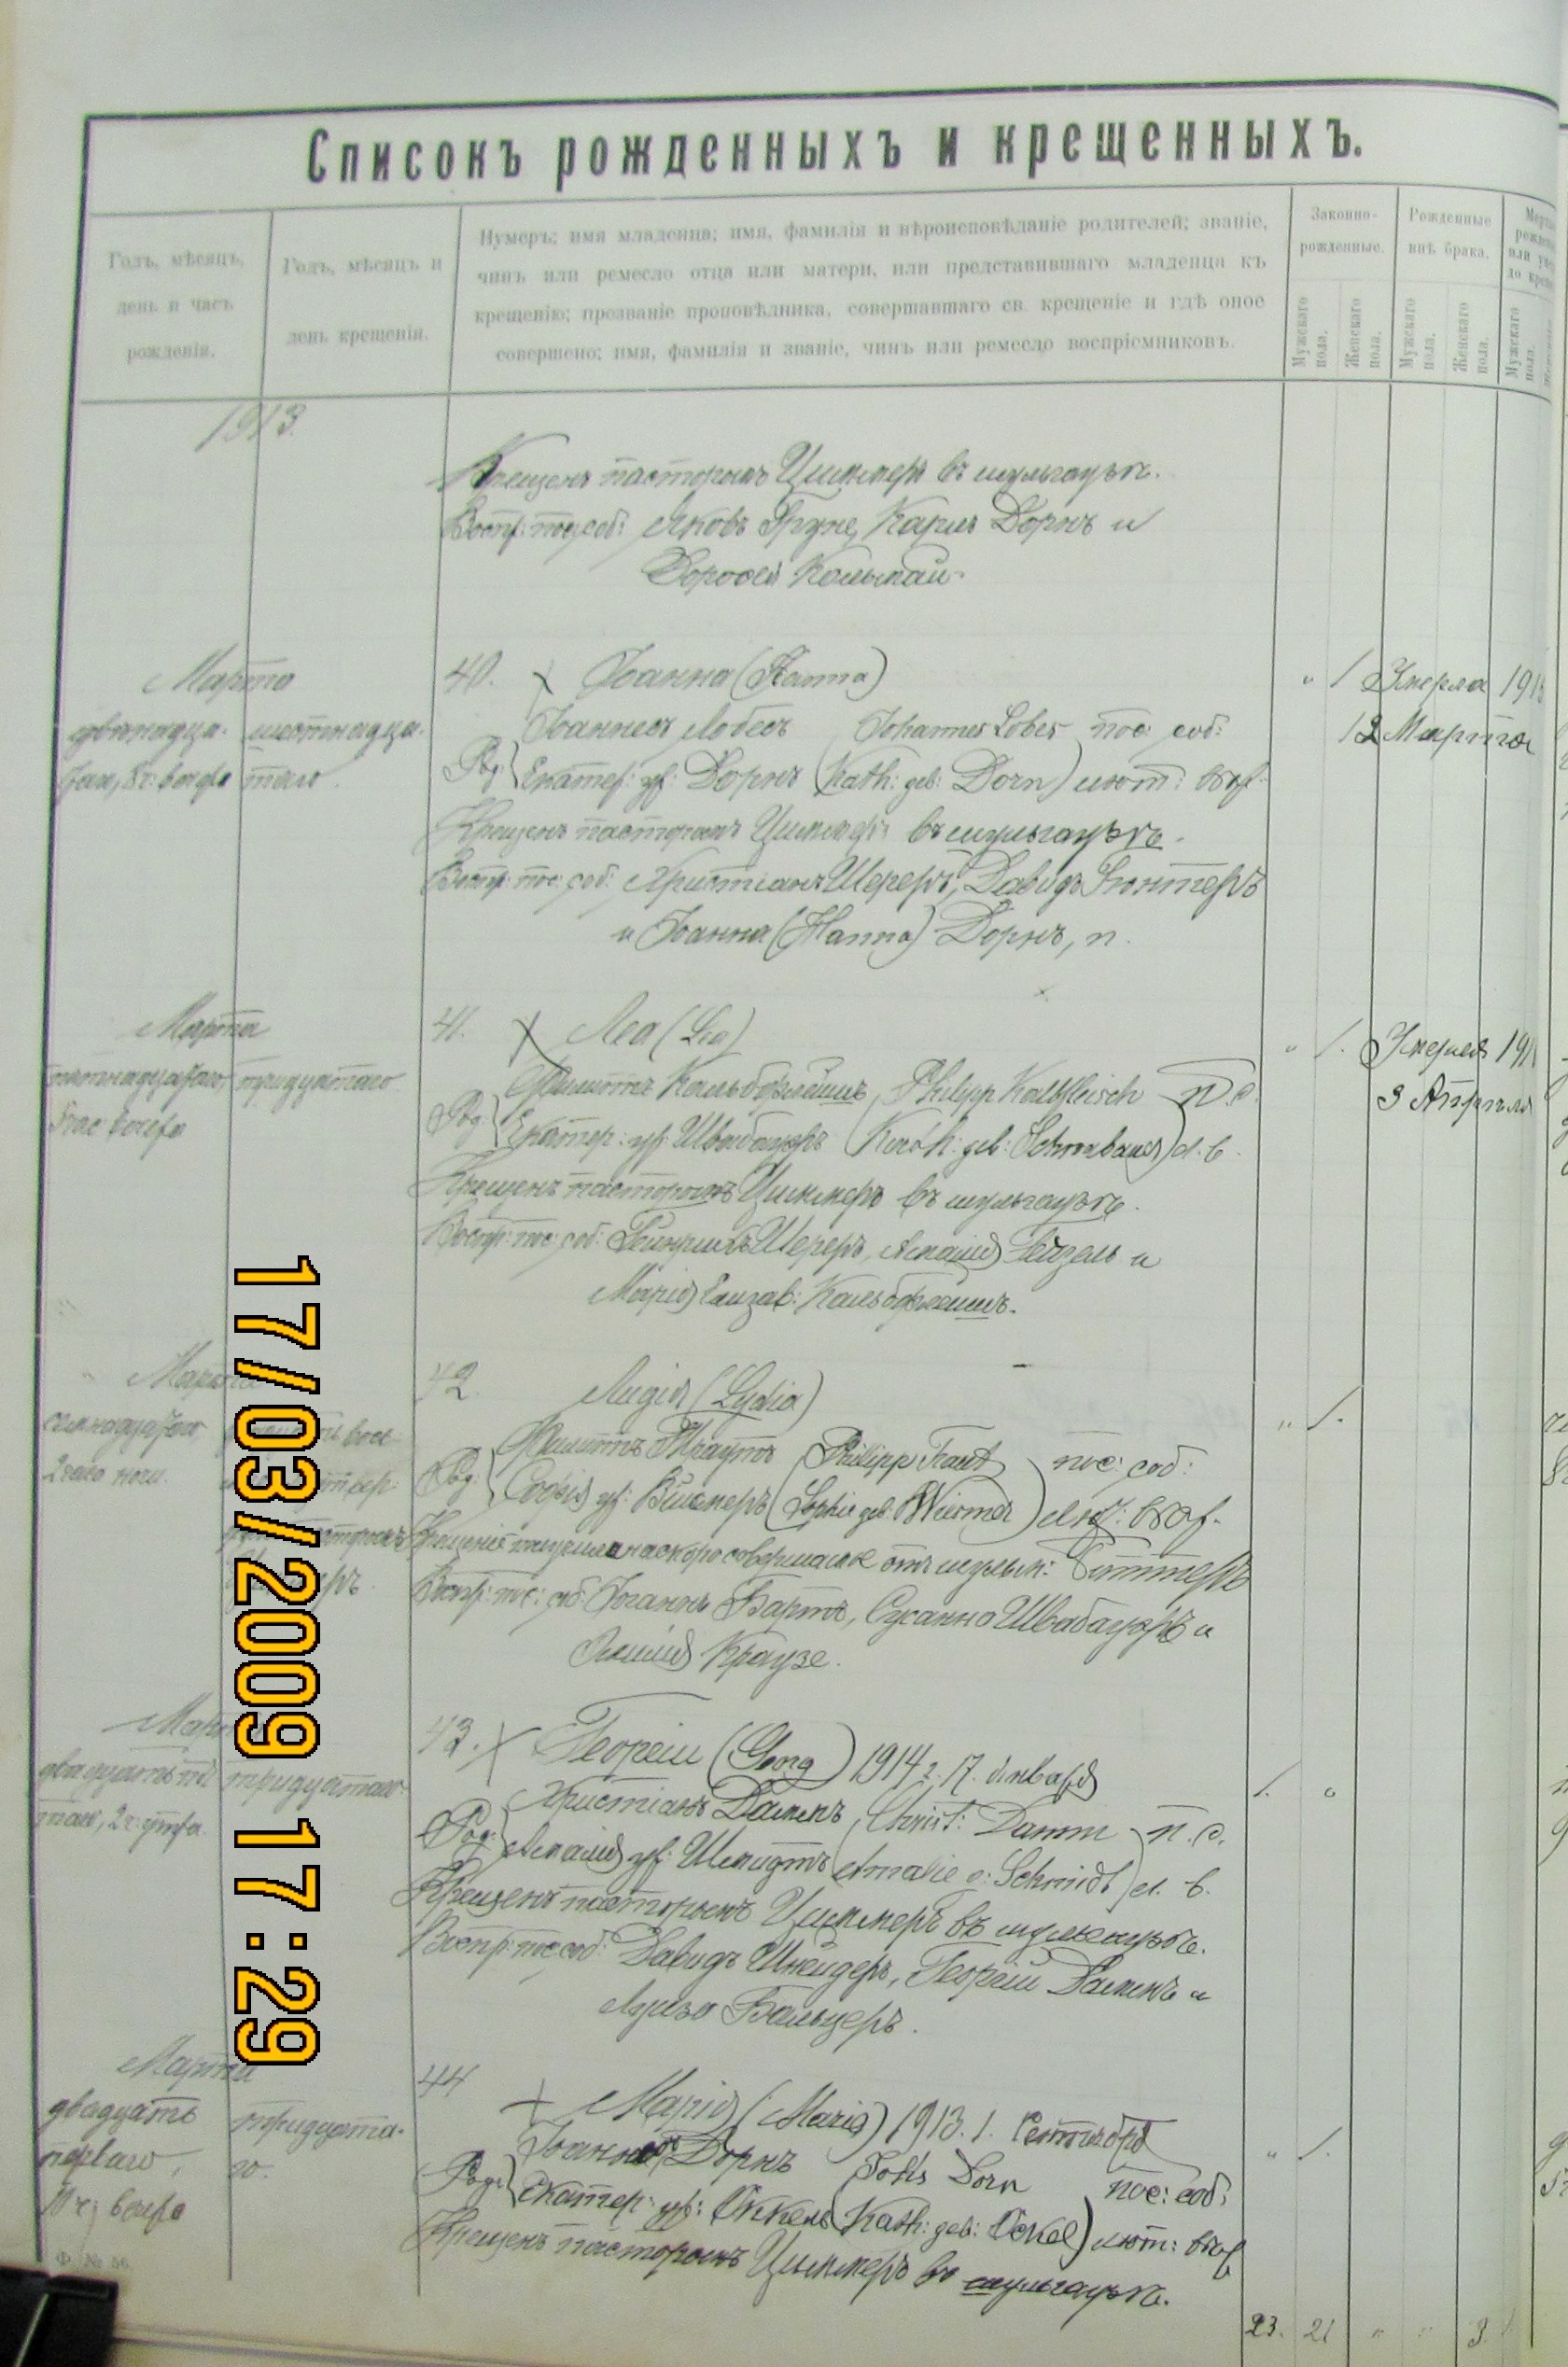 Списокъ рожденныхъ и крещенныхъ.
Годъ, мѣсяцъ, день и часъ рожденія.
Годъ, мѣсяцъ и день крещенія.
Нумеръ; имя младенца; имя, фамилія и вѣроисповѣданіе родителей; званіе,
чинъ или ремесло отца или матери, или представившаго младенца къ
крещенію; прозваніе проповѣдника, совершавшаго св. крещеніе и гдѣ оное
совершено; имя, фамилія и званіе, чинъ или ремесло воспріемниковъ.
Законно-
рожденные.
Рожденные
внѣ брака.
Мужскаго пола.
Женскаго пола.
Мужскаго пола.
Женскаго пола.
Мужскаго пола.
1913.
Крещенъ пасторомъ Циммеръ въ шульгаузѣ.
Воспр: пос: соб: Яковъ Груне, Карлъ Дорнъ и
Доротея Кольмай.
Марта
двѣнадца- шестнадца-
таго, 8 ч: вечера таго.
40. Іоанна (Hanna)
Род: Іоаннесъ Лобесъ Johannes Lobes пос: соб:
Екатер: ур: Дорнъ (Kath: geb: Dorn) лют: вѣр.
Крещенъ пасторомъ Циммеръ въ шульгаузѣ.
Воспр: пос: соб: Христіанъ Шереръ, Давидъ Гюнтеръ
и Іоанна (Hanna) Дорнъ, п.
" 1 Умерла 191
12 Марта
Марта
пятнадцатаго тридцатаго
вечера
41. Леа (Lea)
Род: Филиппъ Кальбфлейшъ, Philipp Kalbfleisch п. с.
Екатер: ур: Швабауеръ (Kath: geb: Schwabauer) л. в.
Крещенъ пасторомъ Циммеръ въ шульгаузѣ.
Воспр: пос: соб: Генрихъ Шереръ, Амалія Гейзель и
Марія Елизав: Кальбфлейшъ.
" 1. Умерла 191
3 Апрѣля
Марта
семнадцатаго
2 часа ночи.
42. Лидія (Lydia)
Род: Филиппъ Траутъ (Philipp Traut пос: соб:
Софія ур: Визнеръ (Sophie geb: Wiesner) лют: вѣр.
Воспр: пос: соб: Іоганнъ Бартъ, Сусанна Швабауеръ и
Эмилія Краузе.
" 1.
Марта
двадцать тридцатаго
2 ч: утра.
43. Георгій (Georg) 1914 г. 17. января
Род: Христіанъ Даммъ, Christ: Damm п. с.
Амалія ур: Шмидтъ Amalie g: Schmidt) л. в.
Крещенъ пасторомъ Циммеръ въ шульгаузѣ.
Воспр: пос: соб: Давидъ Шнейдеръ, Георгій Даммъ и
Луиза Бальцеръ.
1. "
Марта
двадцать тридцата-
перваго, го.
11 ч: вечера
44 Марія (Maria) 1913. 1. Сентября
Род: Іоаннесъ Дорнъ Johs Dorn пос: соб:
Екатер: ур: Оккель (Kath: geb: Ockel) лют: вѣр
Крещенъ пасторомъ Циммеръ въ шульгаузѣ.
" 1.
23. 21 " " 3.
Ф. № 56.
17/03/2009 17:29